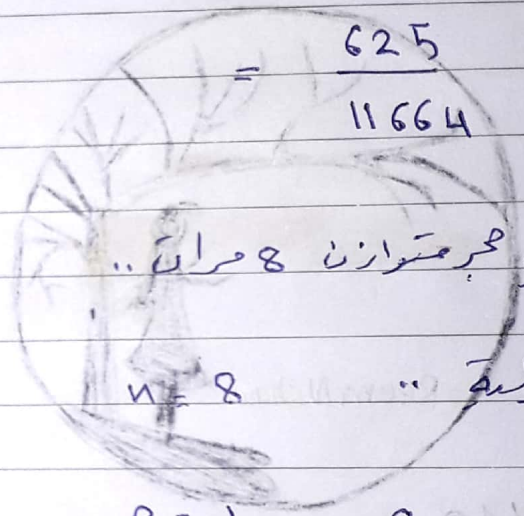 = 625
11664
حجر متوازن 8 مرات ..
.. n = 8